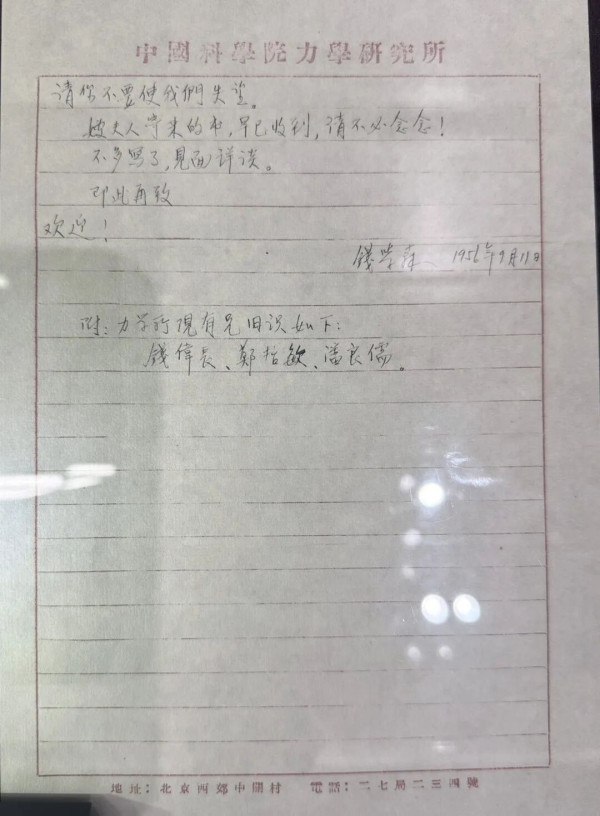 中國科學院力學研究所
请你不要使我們失望。
嫂夫人寄来的书，早已收到，请不必念念！
不多写了，見面详谈。
即此再致
欢迎！
錢学森 1956年9月11日
附：力学所現有兄旧识如下：
錢偉長、鄭哲敏、潘良儒。
地址：北京西郊中關村 電話：二七局二三四號